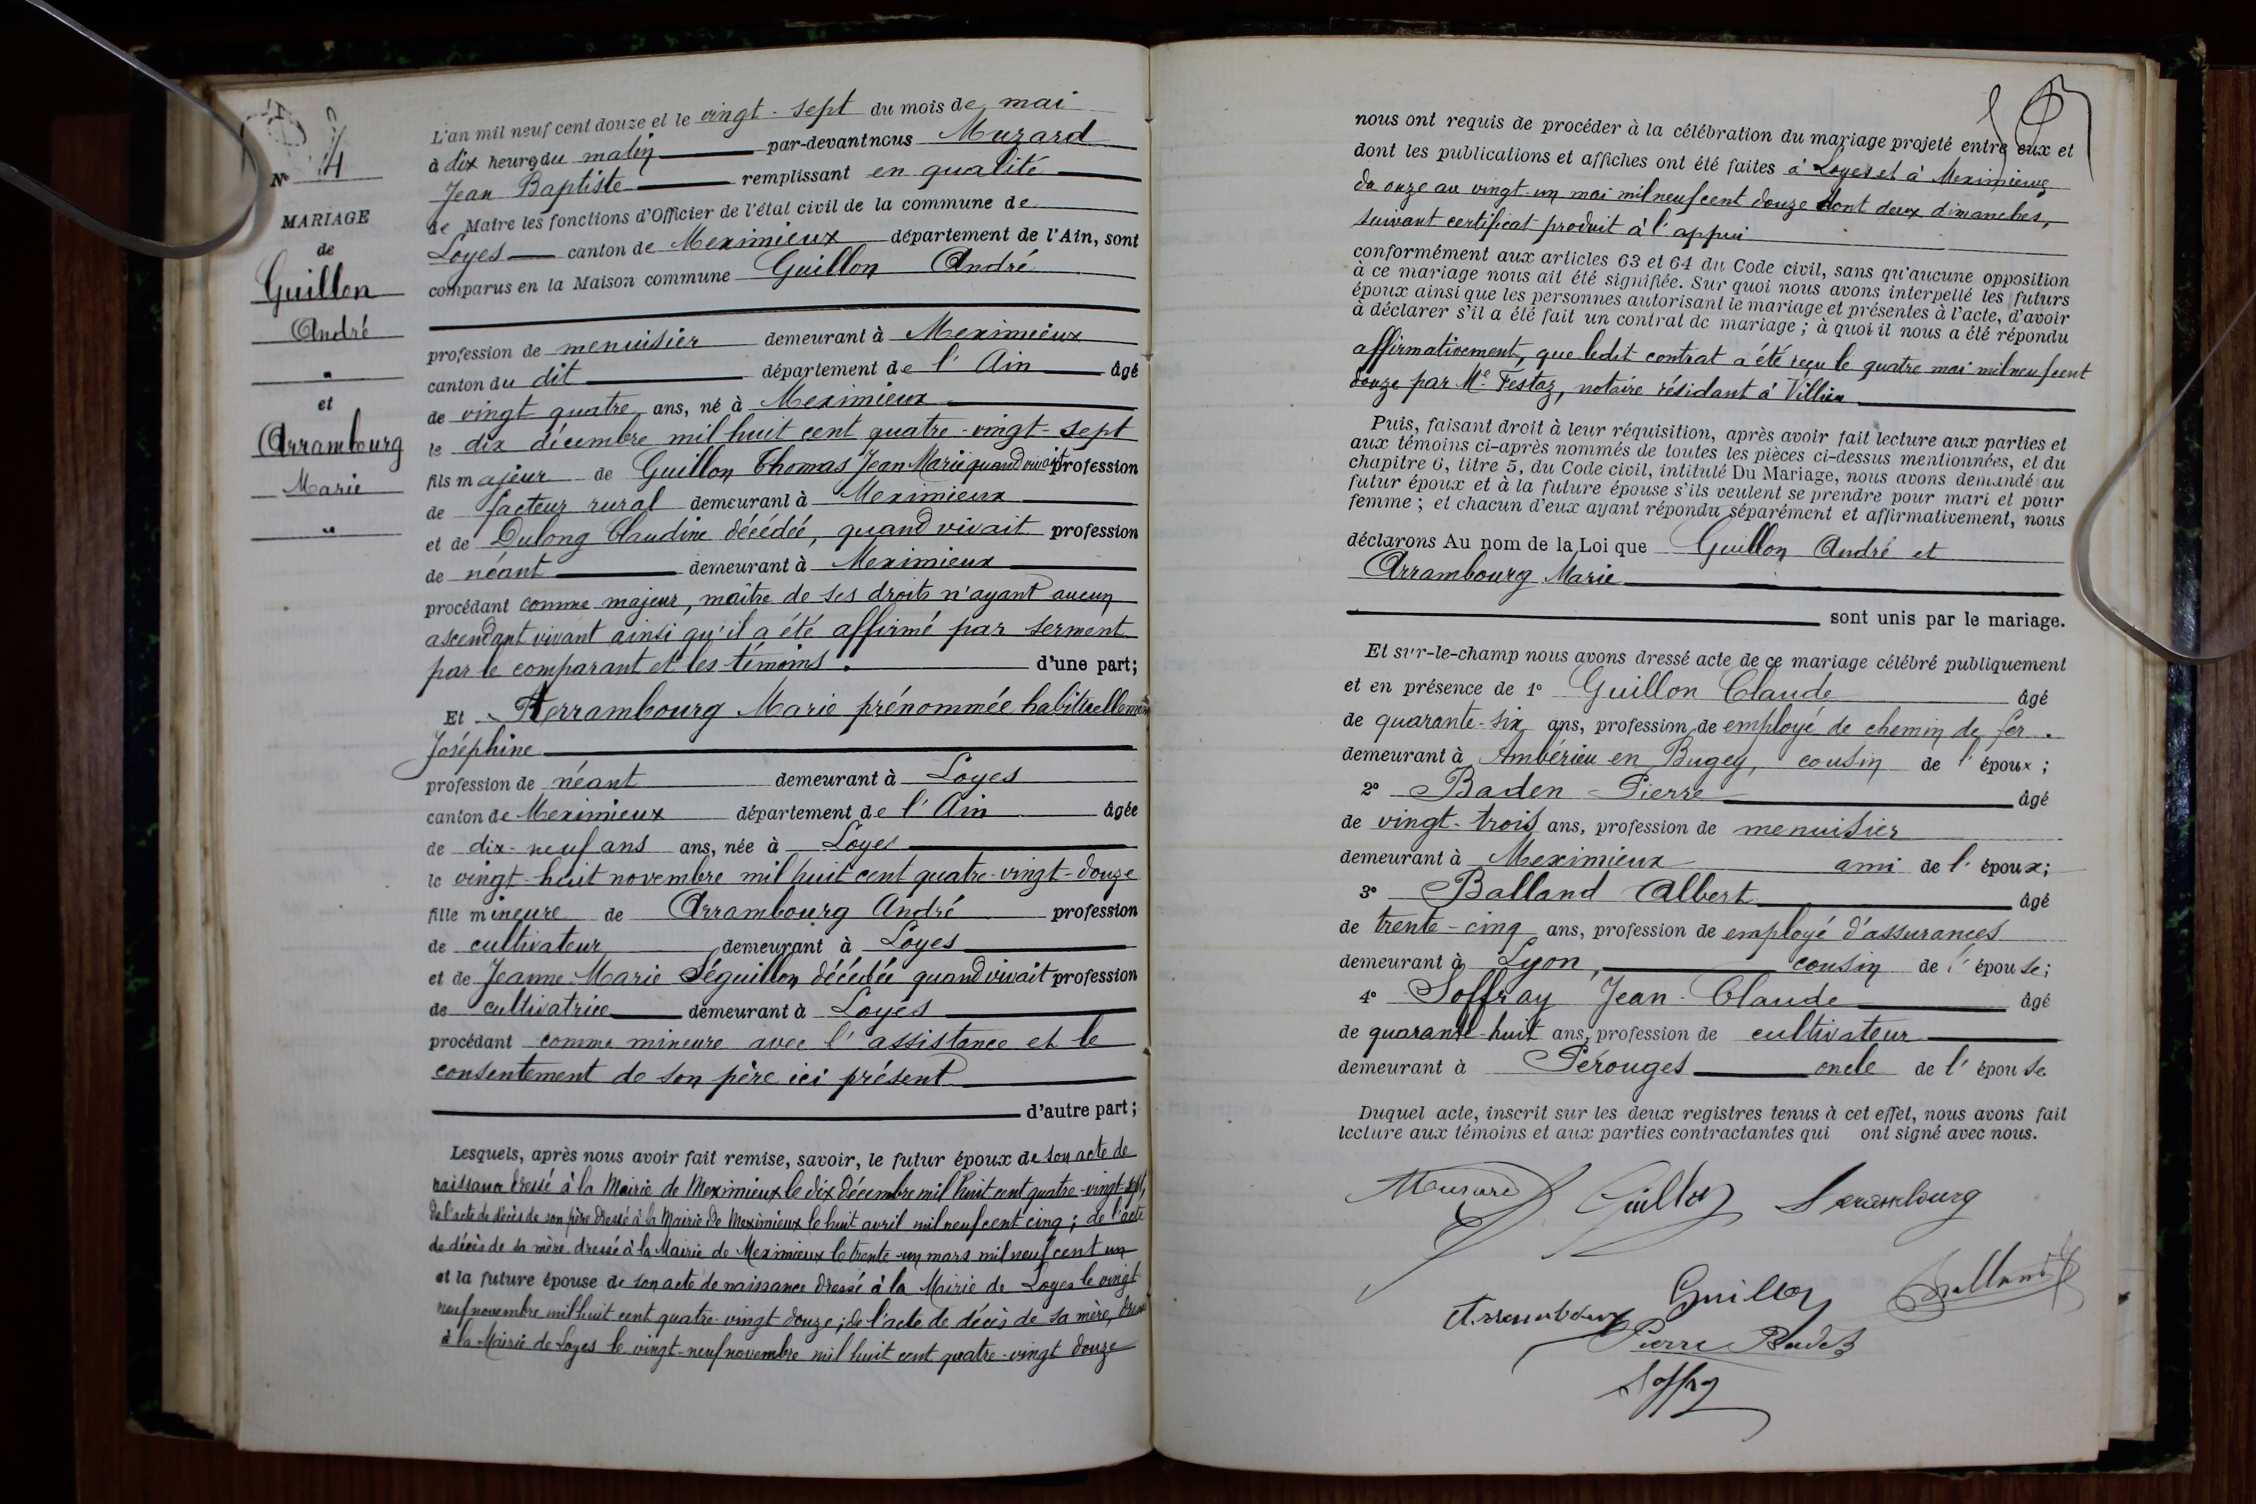 N° 4
MARIAGE
de
Guillon
André
"
et
Arrambourg
Marie
"
L'an mil neuf cent douze et le vingt-sept du mois de mai
à dix heures du matin par-devant nous Muzard
Jean Baptiste remplissant en qualité
de Maire les fonctions d'Officier de l'état civil de la commune de
Loyes canton de Meximieux département de l'Ain, sont
comparus en la Maison commune Guillon André
profession de menuisier demeurant à Meximieux
canton du dit département de l'Ain âgé
de vingt quatre ans, né à Meximieux
le dix décembre mil huit cent quatre-vingt-sept
fils majeur de Guillon Thomas Jean Marie quand vivait profession
de facteur rural demeurant à Meximieux
et de Dulong Claudine décédée, quand vivait profession
de néant demeurant à Meximieux
procédant comme majeur, maître de ses droits n'ayant aucun
ascendant vivant ainsi qu'il a été affirmé par serment
par le comparant et les témoins. d'une part;
Et Arrambourg Marie prénommée habituellement
Joséphine
profession de néant demeurant à Loyes
canton de Meximieux département de l'Ain âgée
de dix-neuf ans ans, née à Loyes
le vingt-huit novembre mil huit cent quatre-vingt-douze
fille mineure de Arrambourg André profession
de cultivateur demeurant à Loyes
et de Jeanne Marie Séguillon décédée quand vivait profession
de cultivatrice demeurant à Loyes
procédant comme mineure avec l'assistance et le
consentement de son père ici présent
d'autre part;
Lesquels, après nous avoir fait remise, savoir, le futur époux de son acte de
naissance dressé à la Mairie de Meximieux le dix décembre mil huit cent quatre-vingt-sept,
de l'acte de décès de son père dressé à la Mairie de Meximieux le huit avril mil neuf cent cinq; de l'acte
de décès de sa mère dressé à la Mairie de Meximieux le trente-un mars mil neuf cent un
et la future épouse de son acte de naissance dressé à la Mairie de Loyes le vingt
neuf novembre mil huit cent quatre-vingt douze; de l'acte de décès de sa mère, dressé
à la Mairie de Loyes le vingt-neuf novembre mil huit cent quatre-vingt douze
nous ont requis de procéder à la célébration du mariage projeté entre eux et
dont les publications et affiches ont été faites à Loyes et à Meximieux
du onze au vingt-un mai mil neuf cent douze dont deux dimanches,
suivant certificat produit à l'appui
conformément aux articles 63 et 64 du Code civil, sans qu'aucune opposition
à ce mariage nous ait été signifiée. Sur quoi nous avons interpellé les futurs
époux ainsi que les personnes autorisant le mariage et présentes à l'acte, d'avoir
à déclarer s'il a été fait un contrat de mariage; à quoi il nous a été répondu
affirmativement, que ledit contrat a été reçu le quatre mai mil neuf cent
douze par Me Festaz, notaire résidant à Villieu
Puis, faisant droit à leur réquisition, après avoir fait lecture aux parties et
aux témoins ci-après nommés de toutes les pièces ci-dessus mentionnées, et du
chapitre 6, titre 5, du Code civil, intitulé Du Mariage, nous avons demandé au
futur époux et à la future épouse s'ils veulent se prendre pour mari et pour
femme; et chacun d'eux ayant répondu séparément et affirmativement, nous
déclarons Au nom de la Loi que Guillon André et
Arrambourg Marie
sont unis par le mariage.
Et sur-le-champ nous avons dressé acte de ce mariage célébré publiquement
et en présence de 1° Guillon Claude âgé
de quarante-six ans, profession de employé de chemin de fer.
demeurant à Ambérieu en Bugey, cousin de l'époux;
2° Baden Pierre âgé
de vingt-trois ans, profession de menuisier
demeurant à Meximieux ami de l'époux;
3° Balland Albert âgé
de trente-cinq ans, profession de employé d'assurances
demeurant à Lyon, cousin de l'épouse;
4° Soffray Jean-Claude âgé
de quarante-huit ans, profession de cultivateur
demeurant à Pérouges oncle de l'épouse
Duquel acte, inscrit sur les deux registres tenus à cet effet, nous avons fait
lecture aux témoins et aux parties contractantes qui ont signé avec nous.
Muzard Guillon Arrambourg
Guillon Balland
Pierre